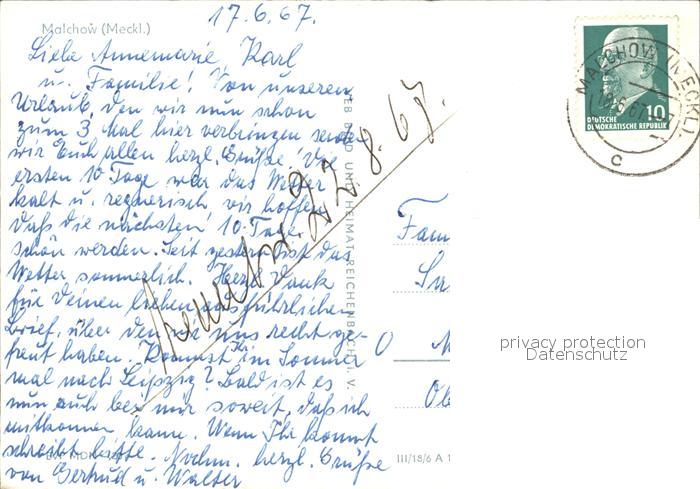 17.6.67.
Malchow (Meckl.)
Liebe Annemarie, Karl
u. Familie! Von unserem
Urlaub, den wir nun schon
zum 3. Mal hier verbringen senden
wir Euch allen herzl. Grüße! Die
ersten 10 Tage war das Wetter
kalt u. regnerisch wir hoffen
daß die nächsten 10 Tage
schön werden. Seit gestern ist das
Wetter sommerlich. Herzl. Dank
für Deinen lieben ausführlichen
Brief, über den wir uns recht ge-
freut haben. Kommst Ihr im Sommer
mal nach Leipzig? Bald ist es
nun auch bei mir soweit, daß ich
mitkommen kann. Wenn Ihr kommt
schreibt bitte. Nochm. herzl. Grüße
von Gertrud u. Walter
22.8.67.
VEB BILD UND HEIMAT REICHENBACH I. V.
III/18/6 A 1
Fam
O
MALCHOW (MECKL)
10
DEUTSCHE
DEMOKRATISCHE REPUBLIK
c
privacy protection
Datenschutz